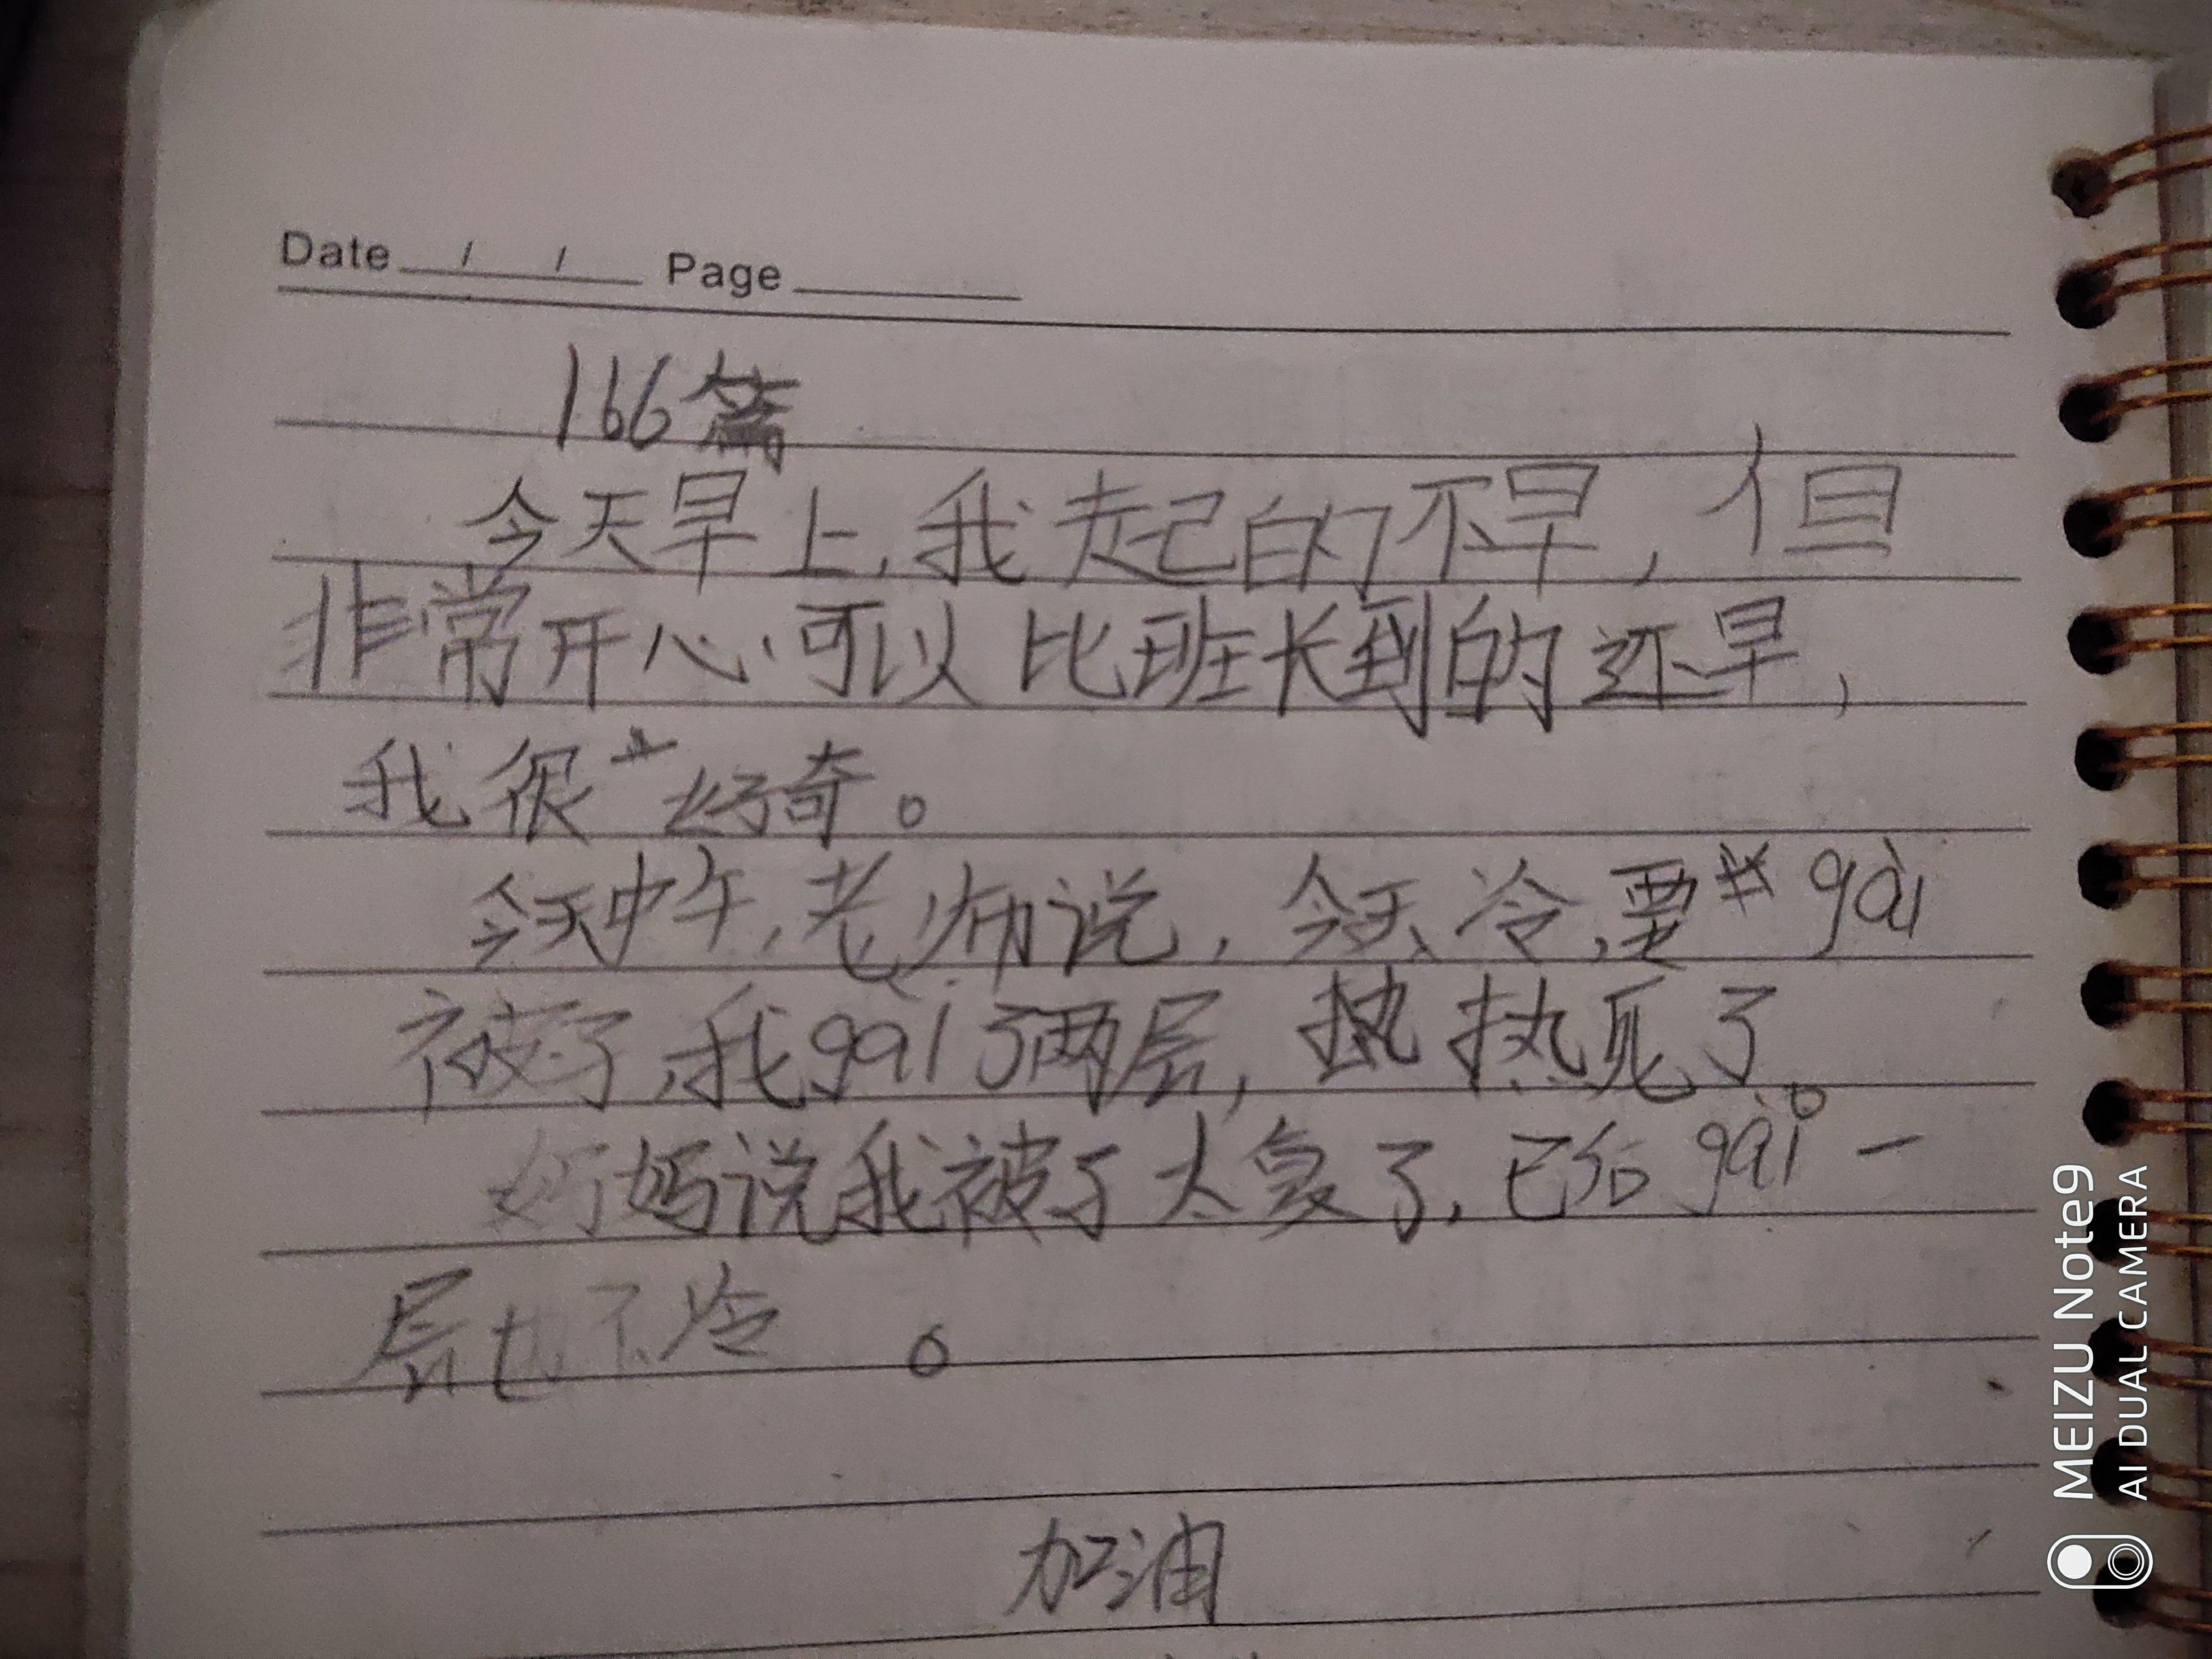 Date / / Page
166篇
今天早上,我起的不早,但
非常开心,可以比班长到的还早,
我很好奇。
今天中午,老师说,今天冷,要gài
被子,我gài了两层,热死了。
妈妈说我被子太复了,已给gài一
层也不冷。
加油
MEIZU Note9
AI DUAL CAMERA